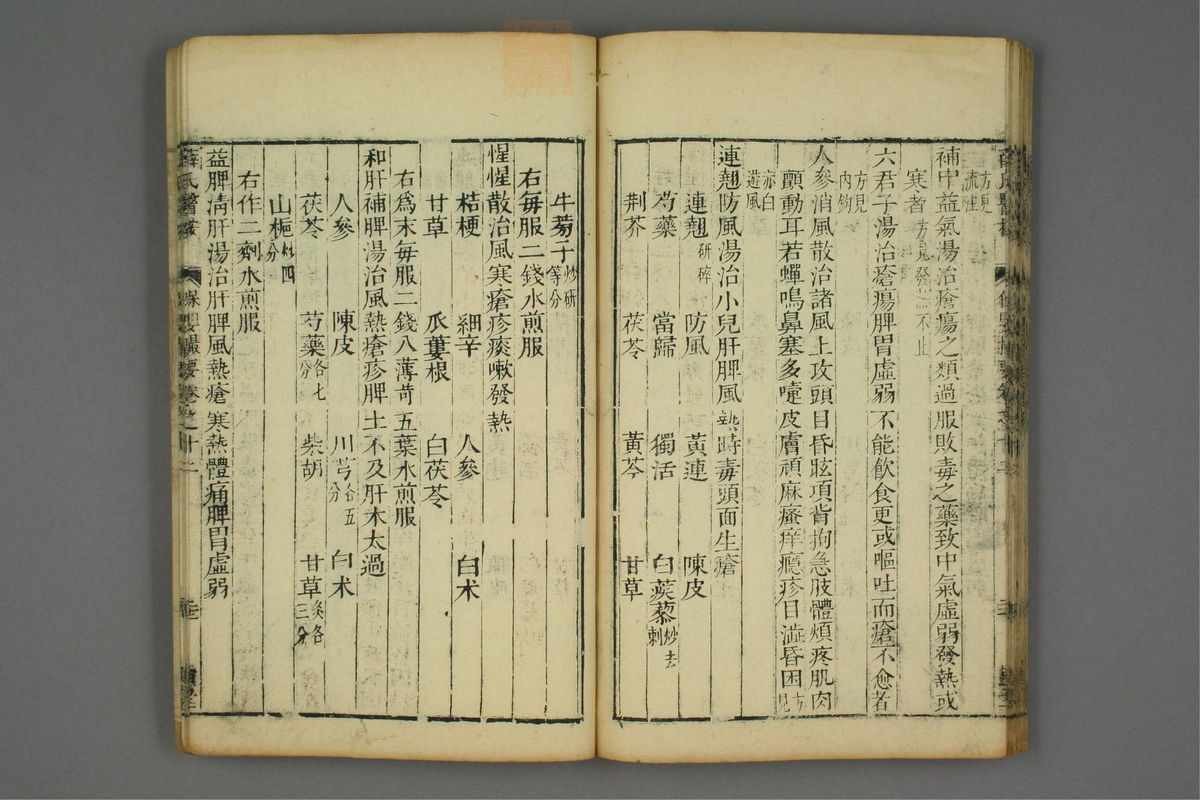 方見
流注
補中益氣湯治瘡瘍之類過服敗毒之藥致中氣虛弱發熱或
寒者方見發熱不止
六君子湯治瘡瘍脾胃虛弱不能飲食更或嘔吐而瘡不愈者
方見
內鈎
人參消風散治諸風上攻頭目昏眩項背拘急肢體煩疼肌肉
顫動耳若蟬鳴鼻塞多嚏皮膚頑麻瘙痒癮疹目澁昏困方見
赤白
遊風
連翹防風湯治小兒肝脾風熱時毒頭面生瘡
連翹研碎 防風 黃連 陳皮
芍藥 當歸 獨活 白蒺藜炒去刺
荆芥 茯苓 黃芩 甘草
牛蒡子炒研等分
右每服二錢水煎服
惺惺散治風寒瘡疹痰嗽發熱
桔梗 細辛 人參 白术
甘草 瓜蔞根 白茯苓
右爲末每服二錢入薄荷五葉水煎服
和肝補脾湯治風熱瘡疹脾土不及肝木太過
人參 陳皮 川芎各五分 白术
茯苓 芍藥各七分 柴胡 甘草炙各三分
山梔炒四分
右作二劑水煎服
益脾清肝湯治肝脾風熱瘡寒熱體痛脾胃虛弱
薛氏醫案 保嬰撮要卷之十二